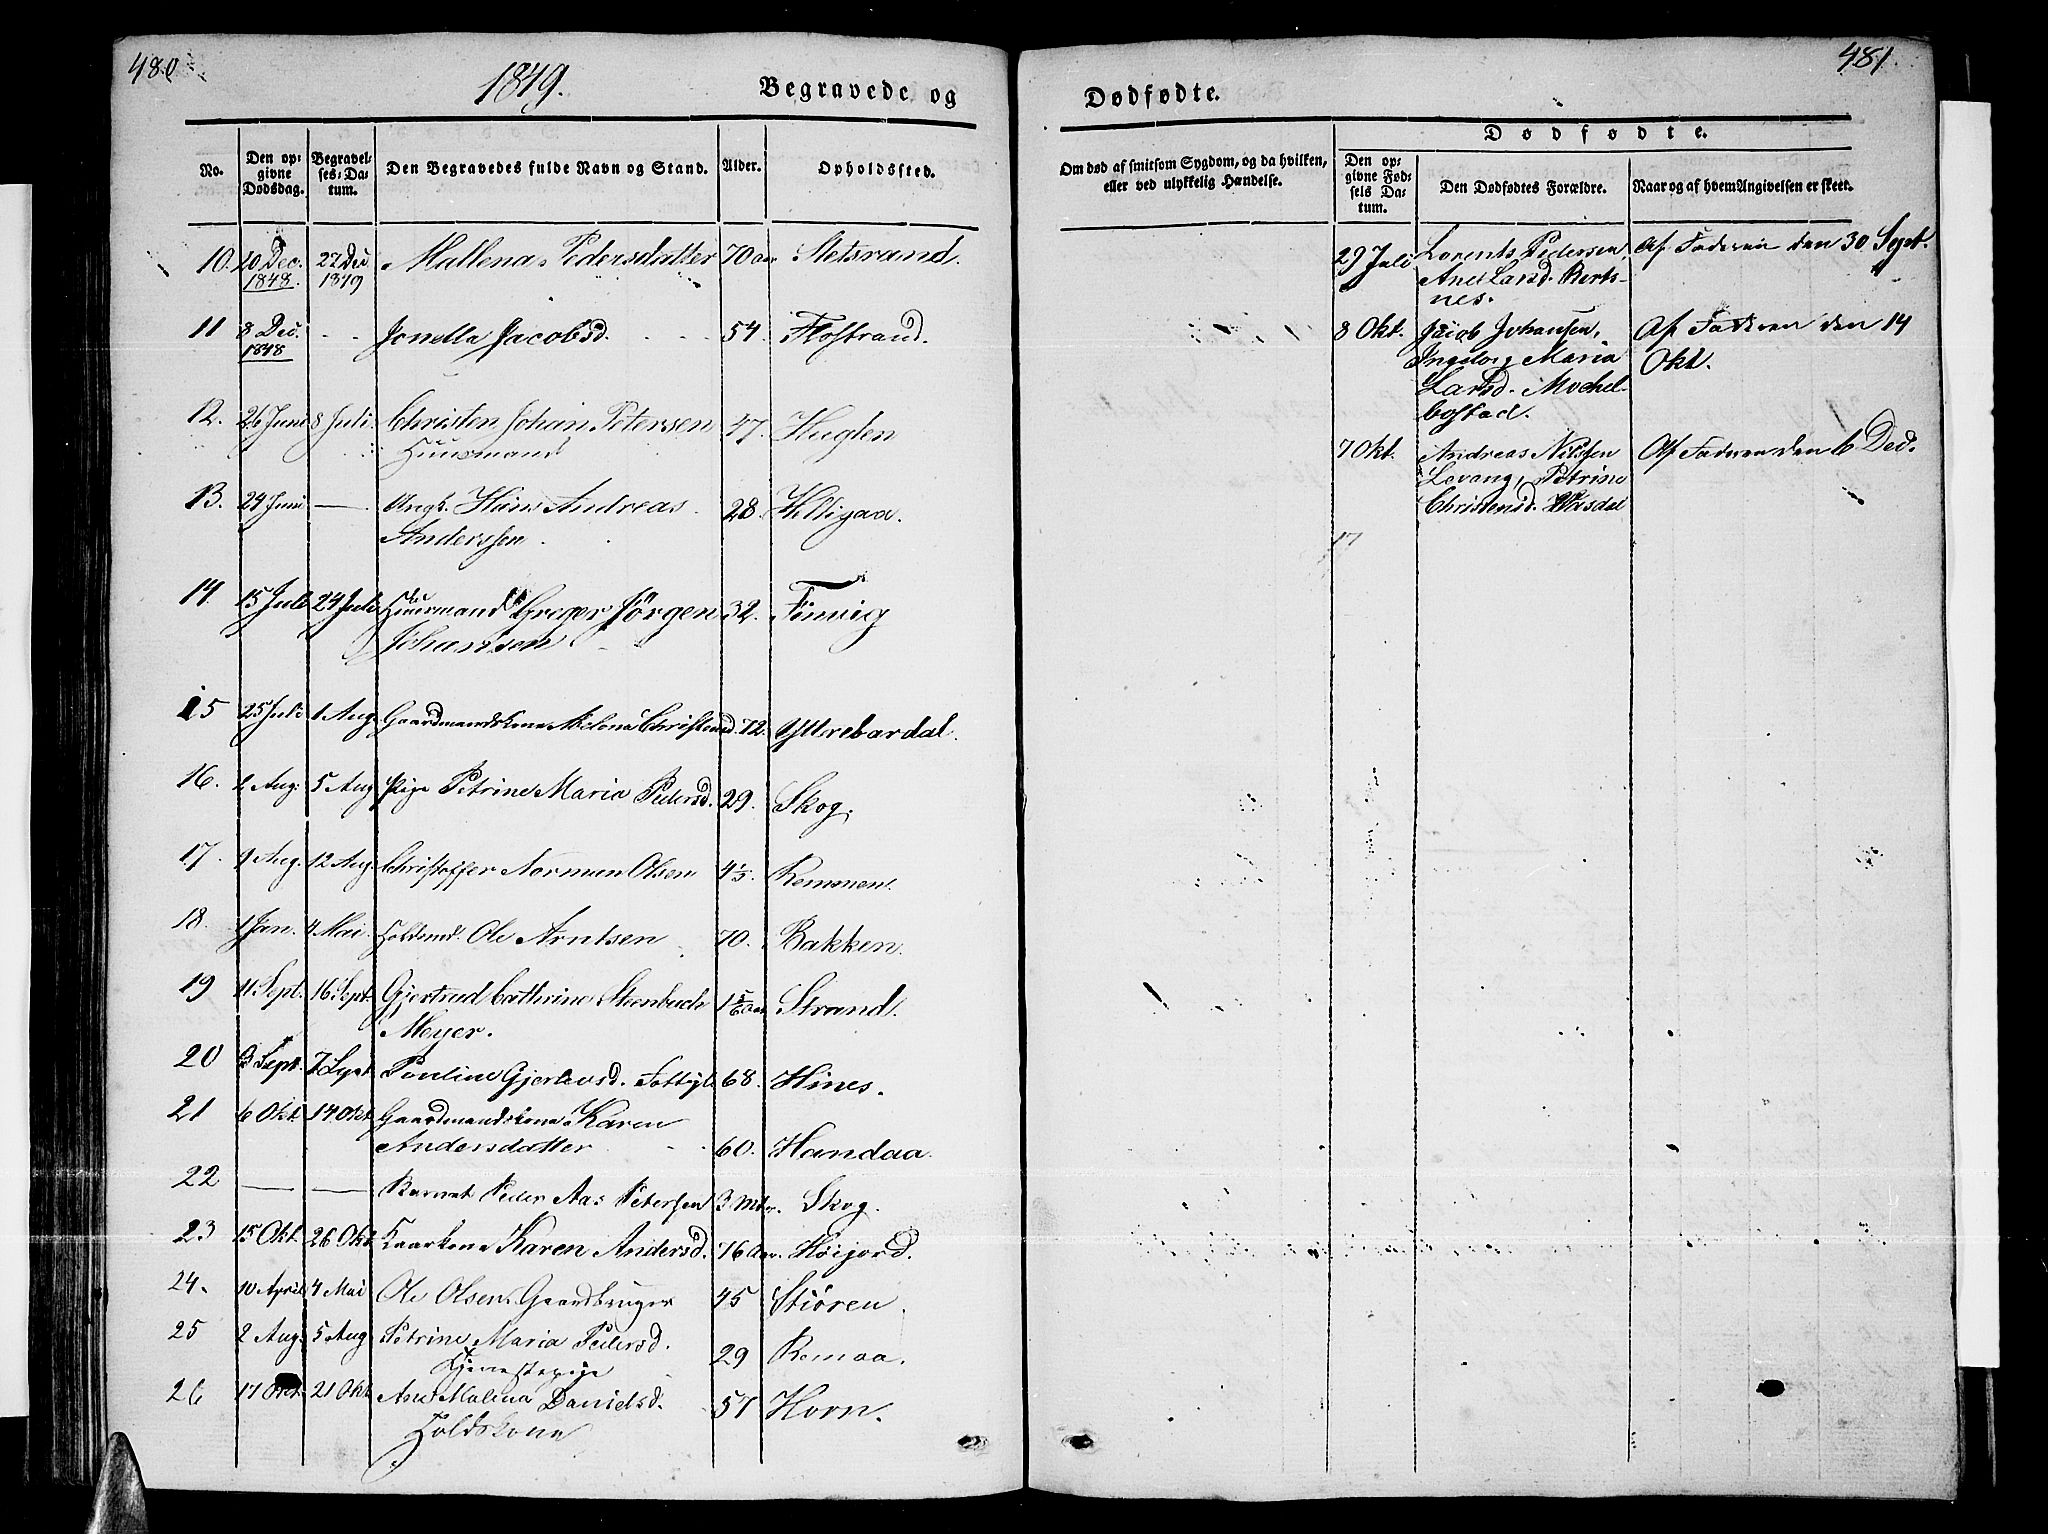 480
1849.
Begravede og
No.
Den op-
givne
Dødsdag.
Begravel-
ses-Da-
tum.
Den Begravedes fulde Navn og Stand.
Alder.
Opholdssted.
10. 20 Dec. 1848. 27 Dec 1849 Mallena Pedersdatter 70 aar Stetsrand.
11 8 Dec. 1848 - - Jonella Jacobsd. 54. Flostrand.
12. 26 Juni 8 Juli. Christen Johan Petersen 47. Huglen
Huusmand
13. 24 Juni — Ungk. Hans Andreas 28. Helligaa.
Anderssen.
14. 15 Juli 24 Juli Huusmand Gregor Jørgen 32. Finvig
Johansen
15 25 Juli 1 Aug Gaardmandskone Christensd. 72. Yttrebardal.
16. 2 Aug. 5 Aug Pige Petrine Maria Pedersd. 29. Skog.
17. 9 Aug. 12 Aug. Christoffer Normen Olsen 4 Remmen.
18. 1 Jan. 4 Mai. Ole Arntsen 70. Bakken.
19 11 Sept. 16 Sept. Gjertrud Cathrine Steenbuch 1 5/6 aar Strand.
Meyer.
20 3 Sept. 7 Sept Pauline Gjertevsd. 68. Hines.
21 6 Okt. 14 Okt. Gaardmandskone Karen
Andersdatter 60. Handaa.
22 — — Barnet Peder Aas Petersen 3 Mdr. Skog.
23 15 Okt. 26 Okt Kaarkone Karen Andersd. 76 Aar. Høijord.
24. 10 April 4 Mai Ole Olsen. Gaardbruger 45 Støren.
25 2 Aug. 5 Aug Petrine Maria Pedersd. 29 Remaa.
Tjenestepige
26 17 Okt. 21 Okt. Ane Malena Danielsd. 57 Horn.
Holdskone
481.
Dødfødte.
Om død af smitsom Sygdom, og da hvilken,
eller ved ulykkelig Hændelse.
Dødfødte.
Den op-
givne Fød-
sels Da-
tum.
Den Dødfødtes Forældre.
Naar og af hvem Angivelsen er skeet.
29 Juli Lorents Pedersen, Af Faderen den 30 Sept.
Ane Larsd. Berts-
nes.
8 Okt. Jacob Johansen, Af Faderen den 14
Ingeborg Maria Okt.
Larsd. Mochel-
bostad.
7 Okt. Andreas Nilssen Af Faderen den 6 Dec.
Levang, Petrine
Christensd.
17